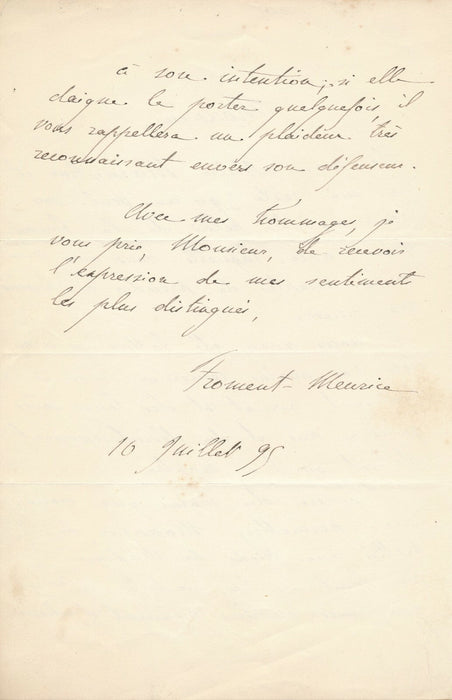 à son intention; si elle
daigne le porter quelquefois, il
vous rappellera un plaideur très
reconnaissant envers son défenseur.
Avec mes hommages, je
vous prie, Monsieur, de recevoir
l'expression de mes sentiments
les plus distingués,
Froment-Meurice
10 Juillet 95